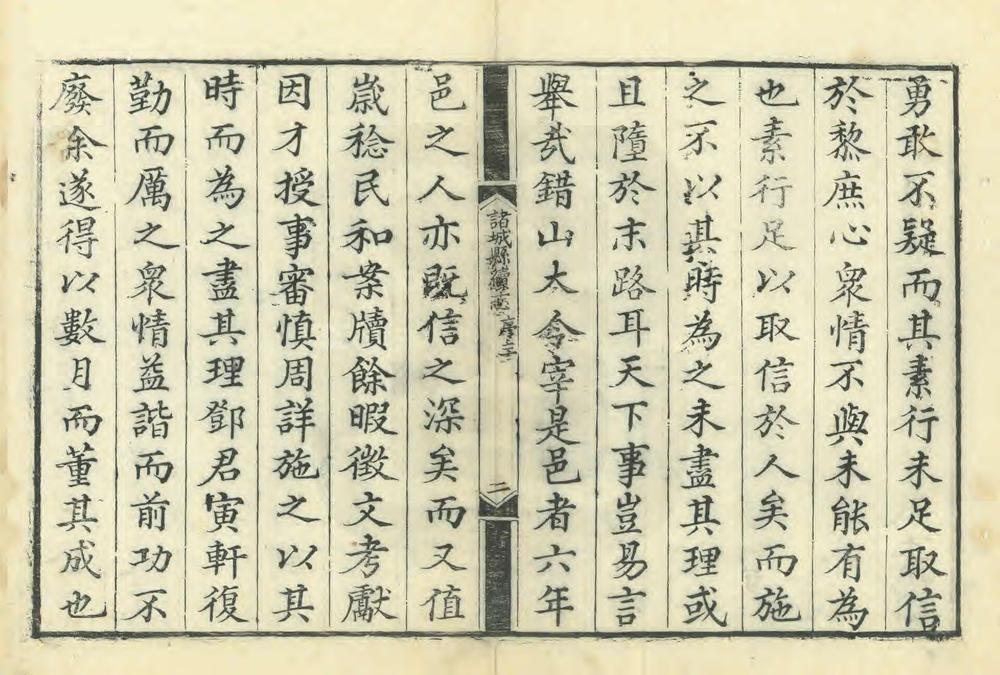 勇敢不疑而其素行未足取信
於黎庶心衆情不與未能有為
也素行足以取信於人矣而施
之不以其時為之未盡其理或
且墮於末路耳天下事豈易言
舉㢤錯山大令宰是邑者六年
諸城縣續志 序
二
邑之人亦既信之深矣而又值
嵗稔民和案牘餘暇徵文考獻
因才授事審慎周詳施之以其
時而為之盡其理鄧君寅軒復
勤而厲之衆情益諧而前功不
廢余遂得以數月而董其成也